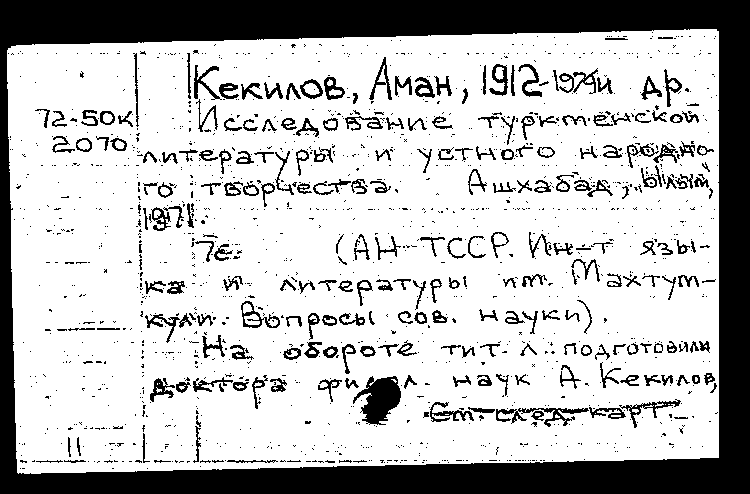 Кекилов, Аман, 1912-1974 и др.
72-50к Исследование туркменской
2070 литературы и устного народно-
го творчества. Ашхабад, Ылым,
1971.
7с. (АН ТССР. Ин-т язы-
ка и литературы им. Махтум-
кули. Вопросы сов. науки).
На обороте тит. л.: подготовили
доктора филол. наук А. Кекилов,
См. след. карт.
11